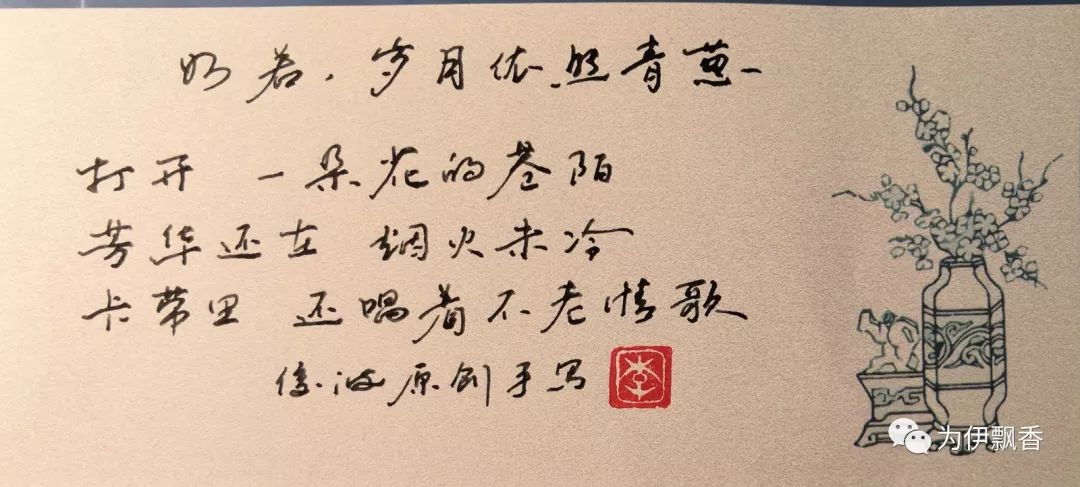 如若，岁月依然青葱
打开 一朵花的巷陌
芳华还在 烟火未冷
卡带里 还唱着不老情歌
波原创手写
为伊飘香